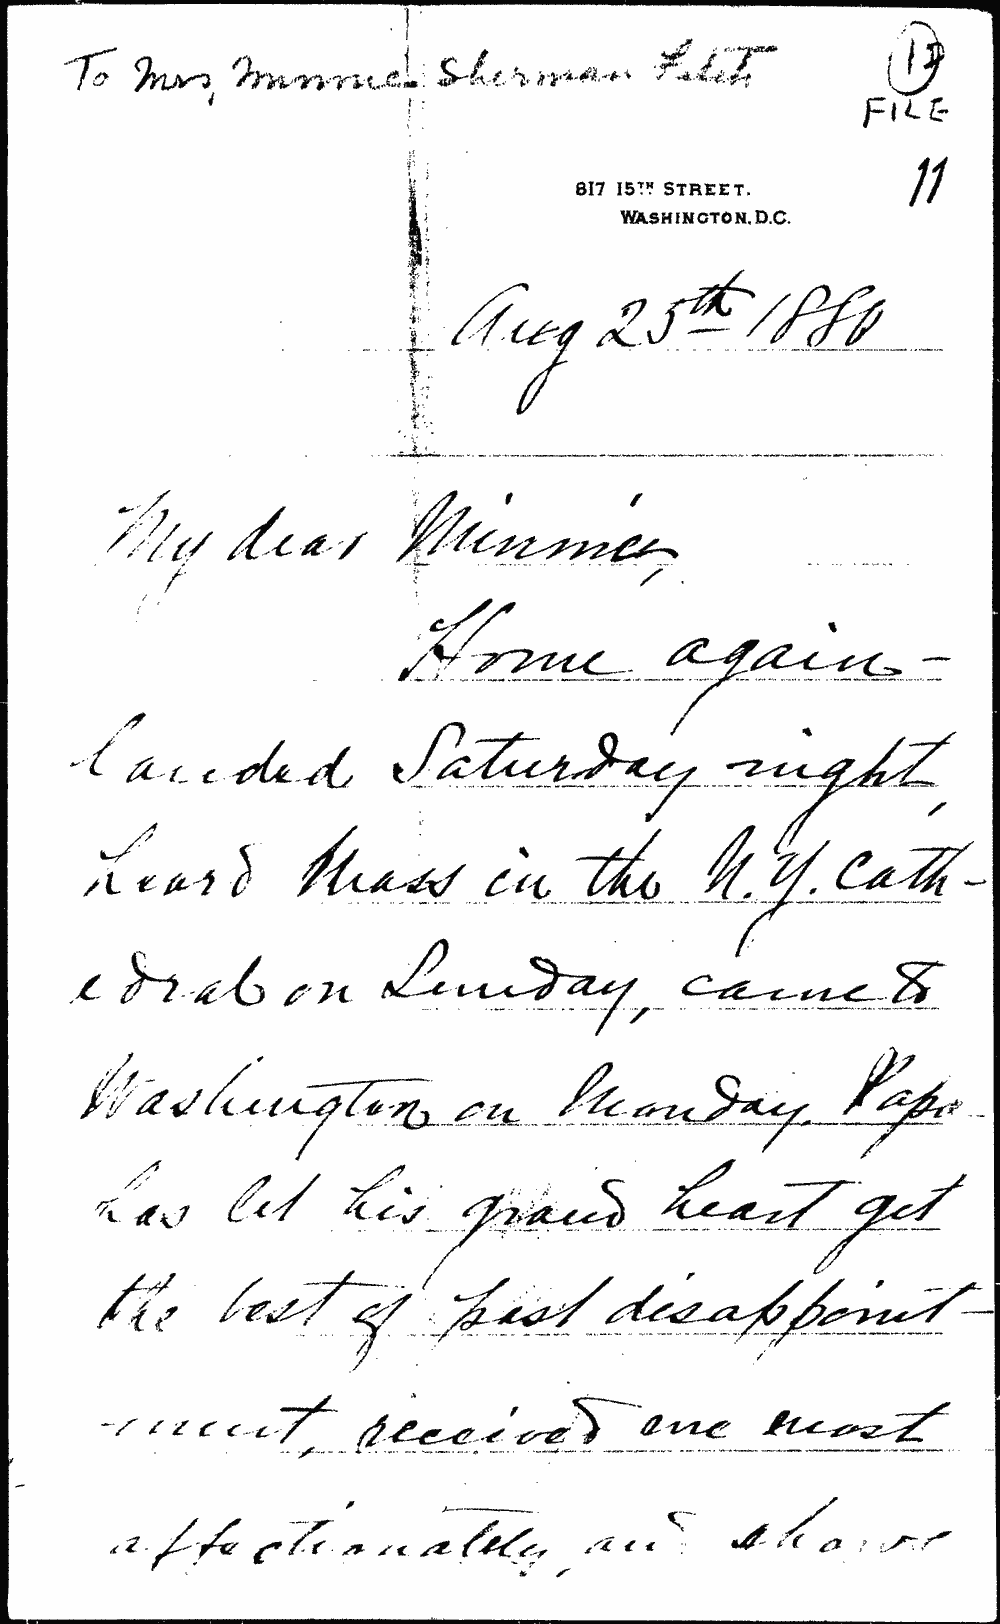 To Mrs, Minnie Sherman Fitch
FILE
11
817 15TH STREET.
WASHINGTON, D.C.
Aug 25th 1880
My dear Minnie,
Home again -
landed Saturday night,
heard Mass in the N.Y. Cath-
edral on Sunday, came to
Washington on Monday. Papa
has let his grand heart get
the best of past disappoint-
-ment, received me most
affectionately, and shows